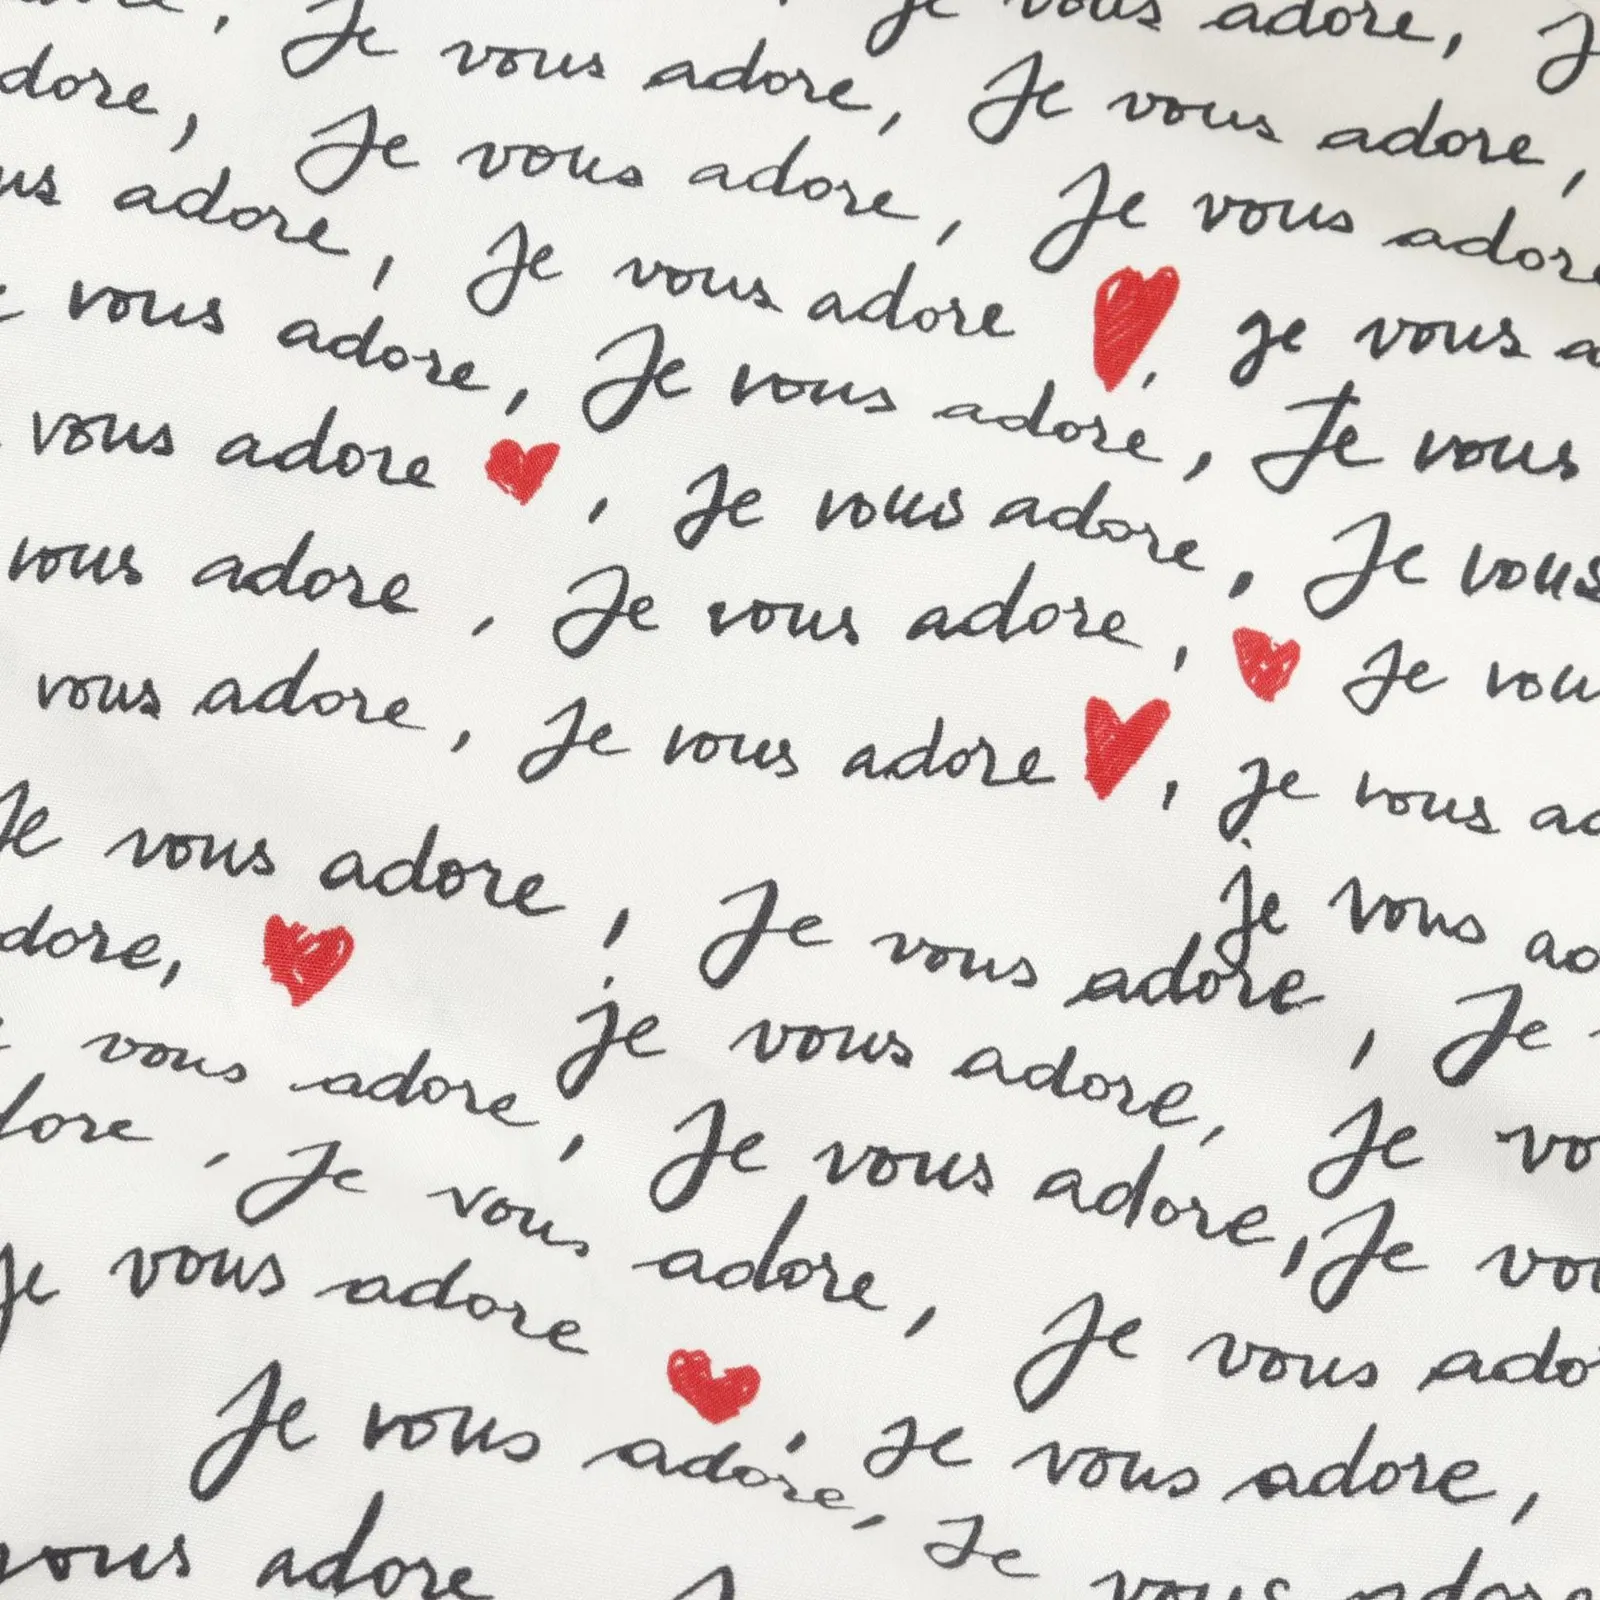 Je vous adore,
Je vous adore, Je vous adore,
adore, Je vous adore, Je vous adore
adore, Je vous adore, je vous
vous adore, Je vous adore, Je vous
vous adore, Je vous adore, Je vous
vous adore, Je vous adore, Je vous
vous adore, Je vous adore, je vous
je vous
Je vous adore, Je vous adore, Je
adore, je vous adore, Je
vous adore, Je vous adore, Je
adore, Je vous adore, Je vous
je vous adore, Je vous adore,
Je vous adore, Je vous adore
vous adore